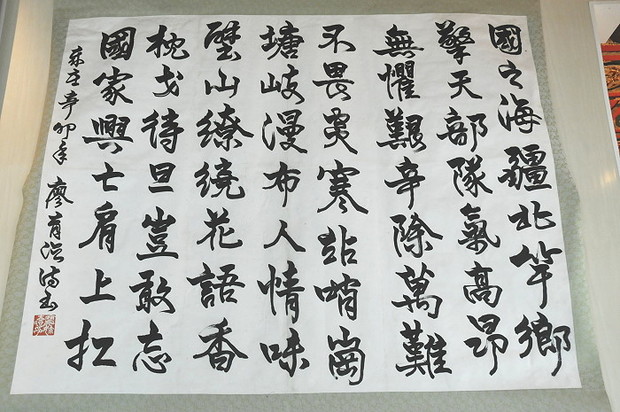 國之海疆北竿鄉
擎天部隊氣高昂
無懼艱辛除萬難
不畏炎寒站哨崗
塘岐漫布人情味
壁山繚繞花語香
枕戈待旦豈敢忘
國家興亡肩上扛
辛卯年 廖育